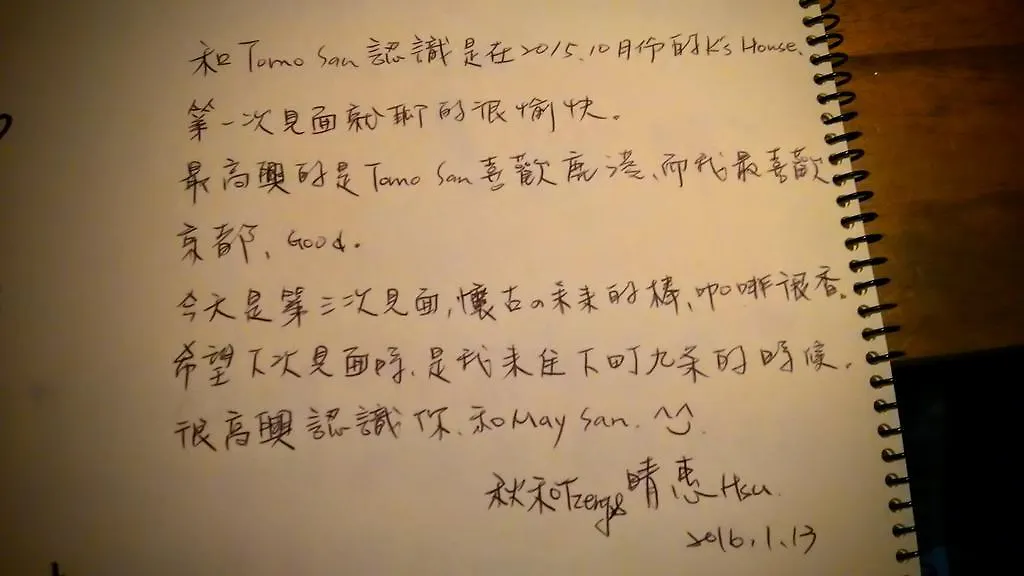 和 Tomo San 認識是在2015.10月份的K's House.
第一次見面就聊的很愉快。
最高興的是Tomo San喜歡鹿港、而我最喜歡
京都, Good.
今天是第三次見面,懷古の未来的棒,咖啡很香。
希望下次見面時.是我来住下町九条的時候.
很高興認識你.和May San. ^^.
秋和Tzeng& 晴惠Hsu.
2016.1.13